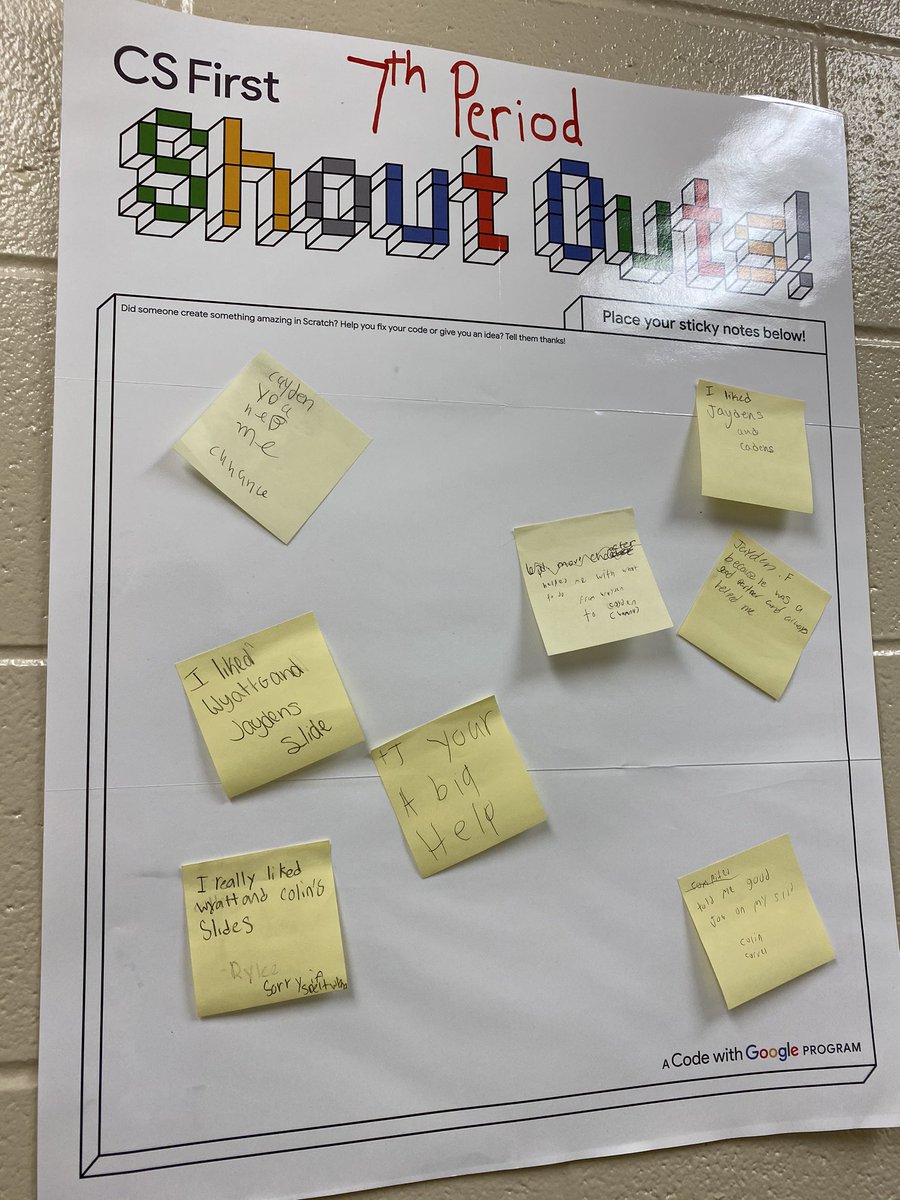 CS First
7th Period
Shout Outs!
Did someone create something amazing in Scratch? Help you fix your code or give you an idea? Tell them thanks!
Place your sticky notes below!
cayden
you
me
I liked
Jaydens
and
cadens
helped me with what
to do
to
Jayden .F
because he was a
good partner and always
helped me
I liked
Wyatt and
Jaydens
Slide
TJ your
A big
Help
I really liked
wyatt and colin's
Slides
-Rylee
Sorry if
told me good
on my slid
colin
A Code with Google PROGRAM